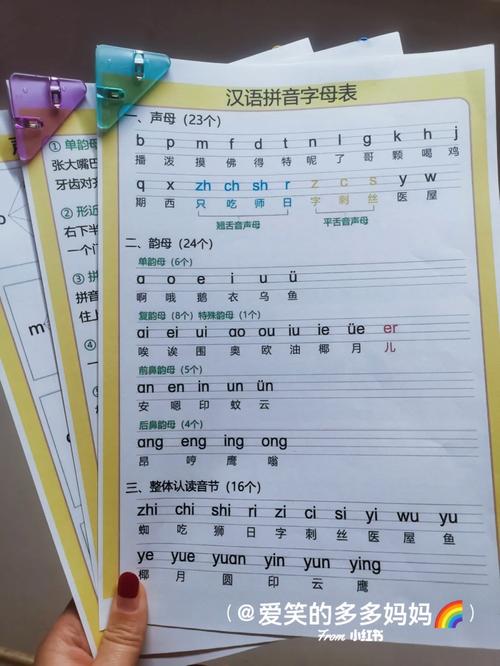 汉语拼音字母表
一、声母（23个）
b p m f d t n l g k h j
播 泼 摸 佛 得 特 呢 了 哥 颗 喝 鸡
q x zh ch sh r z c s y w
期 西 只 吃 师 日 字 刺 丝 医 屋
翘舌音声母 平舌音声母
二、韵母（24个）
单韵母（6个）
ɑ o e i u ü
啊 哦 鹅 衣 乌 鱼
复韵母（8个）特殊韵母（1个）
ɑi ei ui ɑo ou iu ie üe er
唉 诶 围 奥 欧 油 椰 月 儿
前鼻韵母（5个）
ɑn en in un ün
安 嗯 印 蚊 云
后鼻韵母（4个）
ɑng eng ing ong
昂 哼 鹰 嗡
三、整体认读音节（16个）
zhi chi shi ri zi ci si yi wu yu
蜘 吃 狮 日 字 刺 丝 医 屋 鱼
ye yue yuɑn yin yun ying
椰 月 圆 印 云 鹰
① 单韵母
张大嘴巴
牙齿对齐
② 形近
右下半
一个门
③ 拼
拼音
住上
④
m
（@爱笑的多多妈妈🌈）
From 小红书